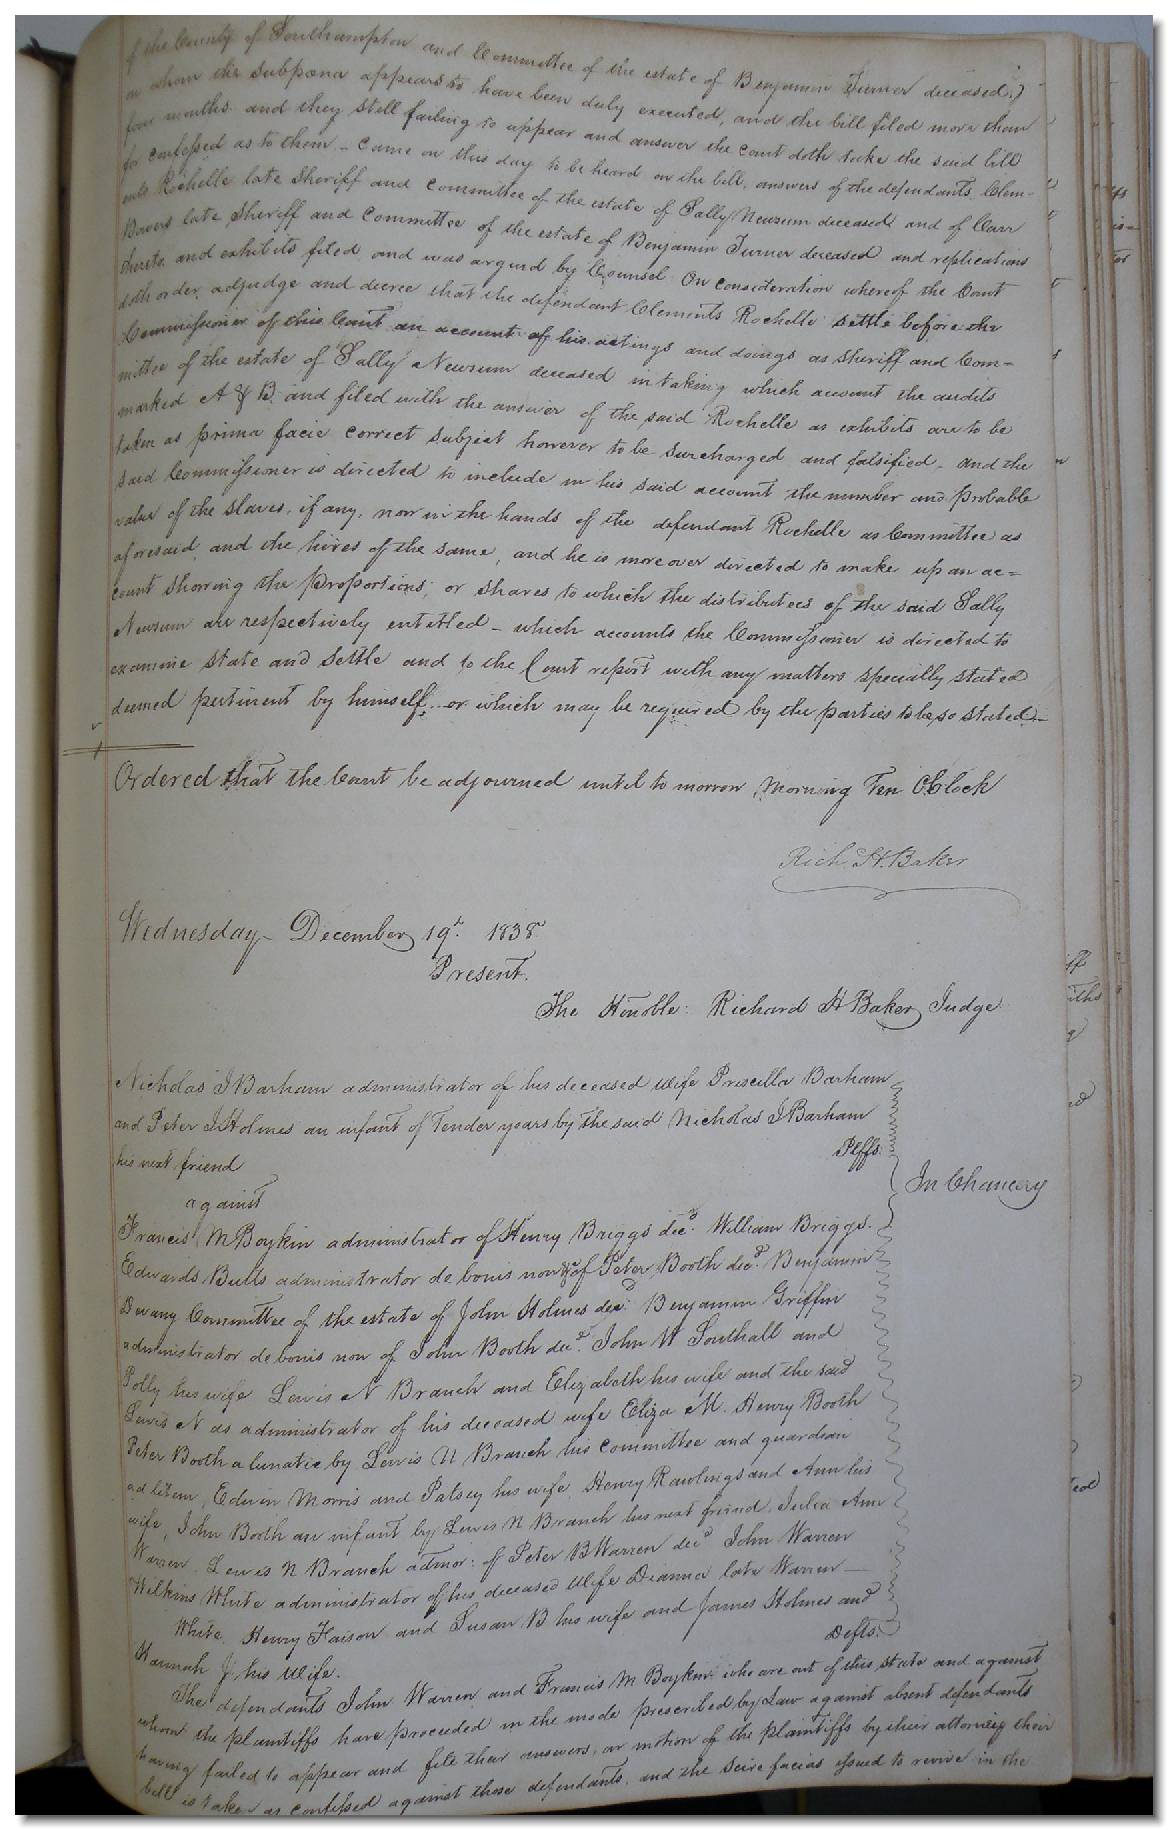 of the County of Southampton and Committee of the estate of Benjamin Turner deceased,)
on whom the subpœna appears to have been duly executed, and the bill filed more than
four months and they still failing to appear and answer the court doth take the said bill
for confessed as to them – came on this day to be heard on the bill, answers of the defendants Clem-
ents Rochelle late Sheriff and Committee of the estate of Sally Newsum deceased and of Carr
Bowers late Sheriff and Committee of the estate of Benjamin Turner deceased and replications
thereto and exhibits filed, and was argued by Counsel. On consideration whereof the Court
doth order, adjudge and decree that the defendant Clements Rochelle settle before the
Commissioner of this Court an account of his actings and doings as sheriff and Com-
mittee of the estate of Sally Newsum deceased in taking which account the audits
marked A & B. and filed with the answer of the said Rochelle as exhibits are to be
taken as prima facie correct subject however to be surcharged and falsified – and the
said Commissioner is directed to include in his said account the number and probable
value of the slaves, if any, now in the hands of the defendant Rochelle as Committee as
aforesaid, and the hires of the same, and he is moreover directed to make up an ac=
count showing the proportions, or shares to which the distributees of the said Sally
Newsum are respectively entitled – which accounts the Commissioner is directed to
examine state and settle and to the Court report with any matters specially stated
deemed pertinent by himself, or which may be required by the parties to be so stated –
Ordered that the Court be adjourned until to morrow Morning Ten O'Clock
Rich. H. Baker
Wednesday – December 19th. 1838
Present.
The Honoble: Richard H Baker Judge
Nicholas J Barham administrator of his deceased wife Priscilla Barham
and Peter J Holmes an infant of Tender years by the said Nicholas J Barham
his next friend Plffs.
against In Chancery
Francis M Boykin administrator of Henry Briggs decd. William Briggs.
Edwards Butts administrator de bonis non &c of Peter Booth decd. Benjamin
Devany Committee of the estate of John Holmes decd. Benjamin Griffin
administrator de bonis non of John Booth decd. John W Southall and
Polly his wife Lewis N Branch and Elizabeth his wife and the said
Lewis N as administrator of his deceased wife Eliza M. Henry Booth
Peter Booth a lunatic by Lewis N Branch his committee and guardian
ad litem, Edwin Morris and Patsey his wife, Henry Rawlings and Ann his
wife, John Booth an infant by Lewis N Branch his next friend, Julia Ann
Warren, Lewis N Branch admor: of Peter B Warren decd John Warren
Wilkins White administrator of his deceased Wife Dianna late Warren –
White, Henry Faison and Susan B his wife and James Holmes and
Hannah J his Wife. Defts.
The defendants John Warren and Francis M Boykin who are out of this state and against
whom the plaintiffs have proceeded in the mode prescribed by Law against absent defendants
having failed to appear and file their answers, on motion of the plaintiffs by their attorney their
bill is taken as confessed against those defendants, and the Scire facias issued to revive in the